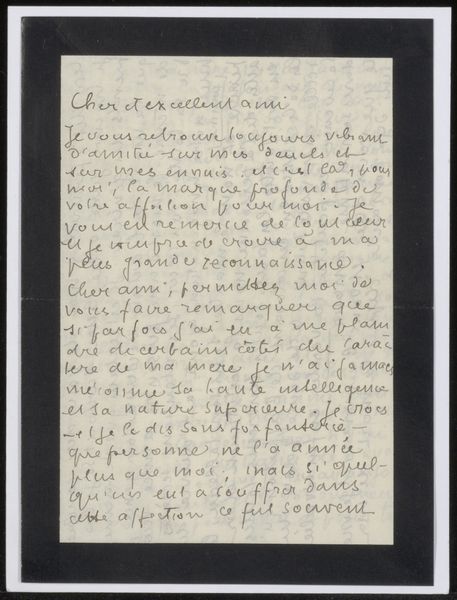 Cher et excellent ami
Je vous retrouve toujours vibrant
d'amitié sur mes deuils et
sur mes ennuis. et c'est là, pour
moi, la marque profonde de
votre affection pour moi. Je
vous en remercie de tout coeur
et je vous prie de croire à ma
plus grande reconnaissance.
Cher ami, permettez moi de
vous faire remarquer que
si parfois j'ai eu à me plain
dre de certains côtés du carac
tere de ma mere je n'ai jamais
méconnu sa haute intelligence
et sa nature superieure. Je crois
– et je le dis sans forfanterie –
que personne ne l'a aimée
plus que moi, mais si quel-
qu'un eut a souffrir dans
cette affection ce fut souvent